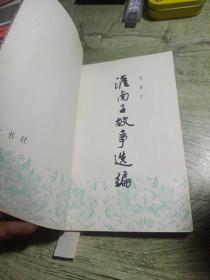 淮南子故事选编
书社